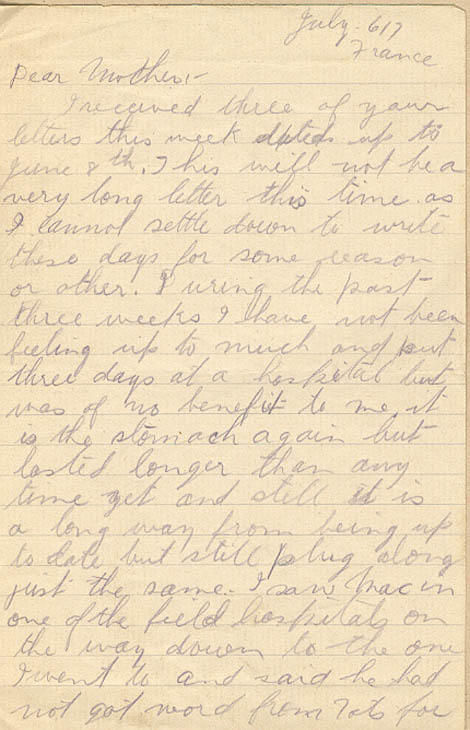 July. 6/7
France
Dear Mother:-
I received three of your
letters this week dated up to
June 8th. This will not be a
very long letter this time as
I cannot settle down to write
these days for some reason
or other. During the past
three weeks I have not been
feeling up to much and put
three days at a hospital but
was of no benefit to me it
is the stomach again but
lasted longer than any
time yet and still it is
a long way from being up
to date but still plug along
just the same. I saw Mac in
one of the field hospitals on
the way down to the one
I went to and said he had
not got word from Tots for